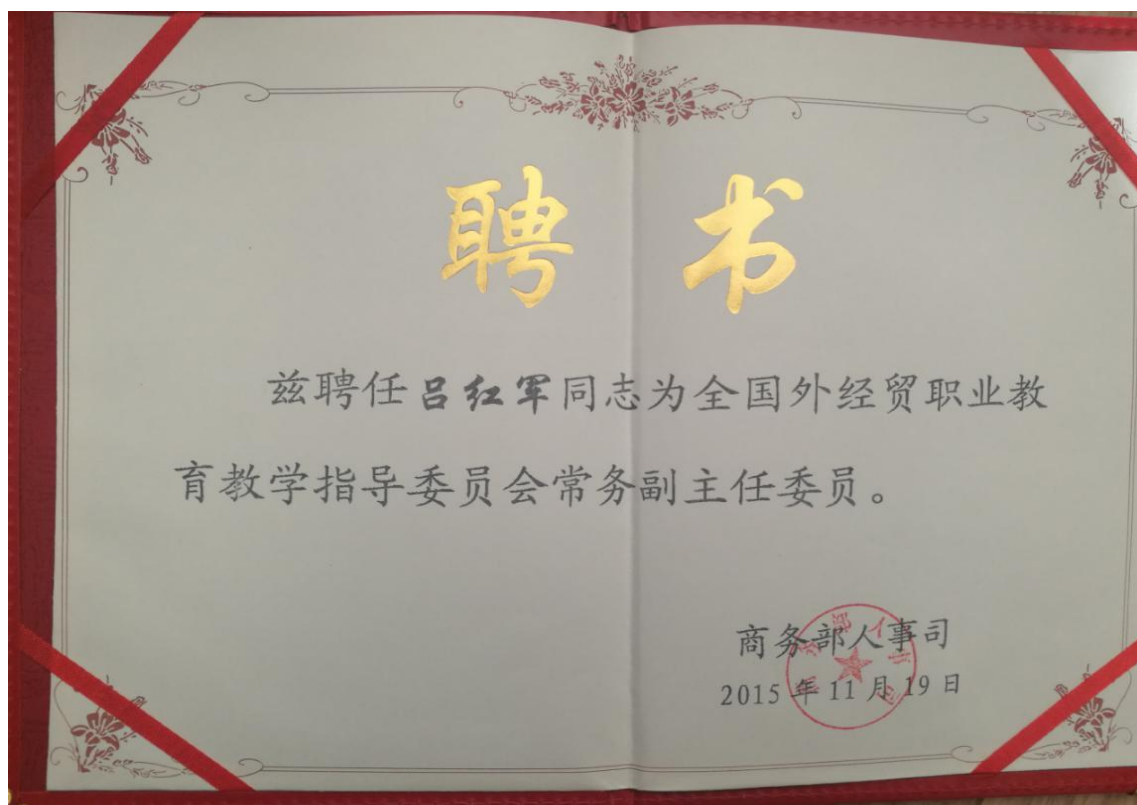 聘书
兹聘任吕红军同志为全国外经贸职业教
育教学指导委员会常务副主任委员。
商务部人事司
2015年11月19日